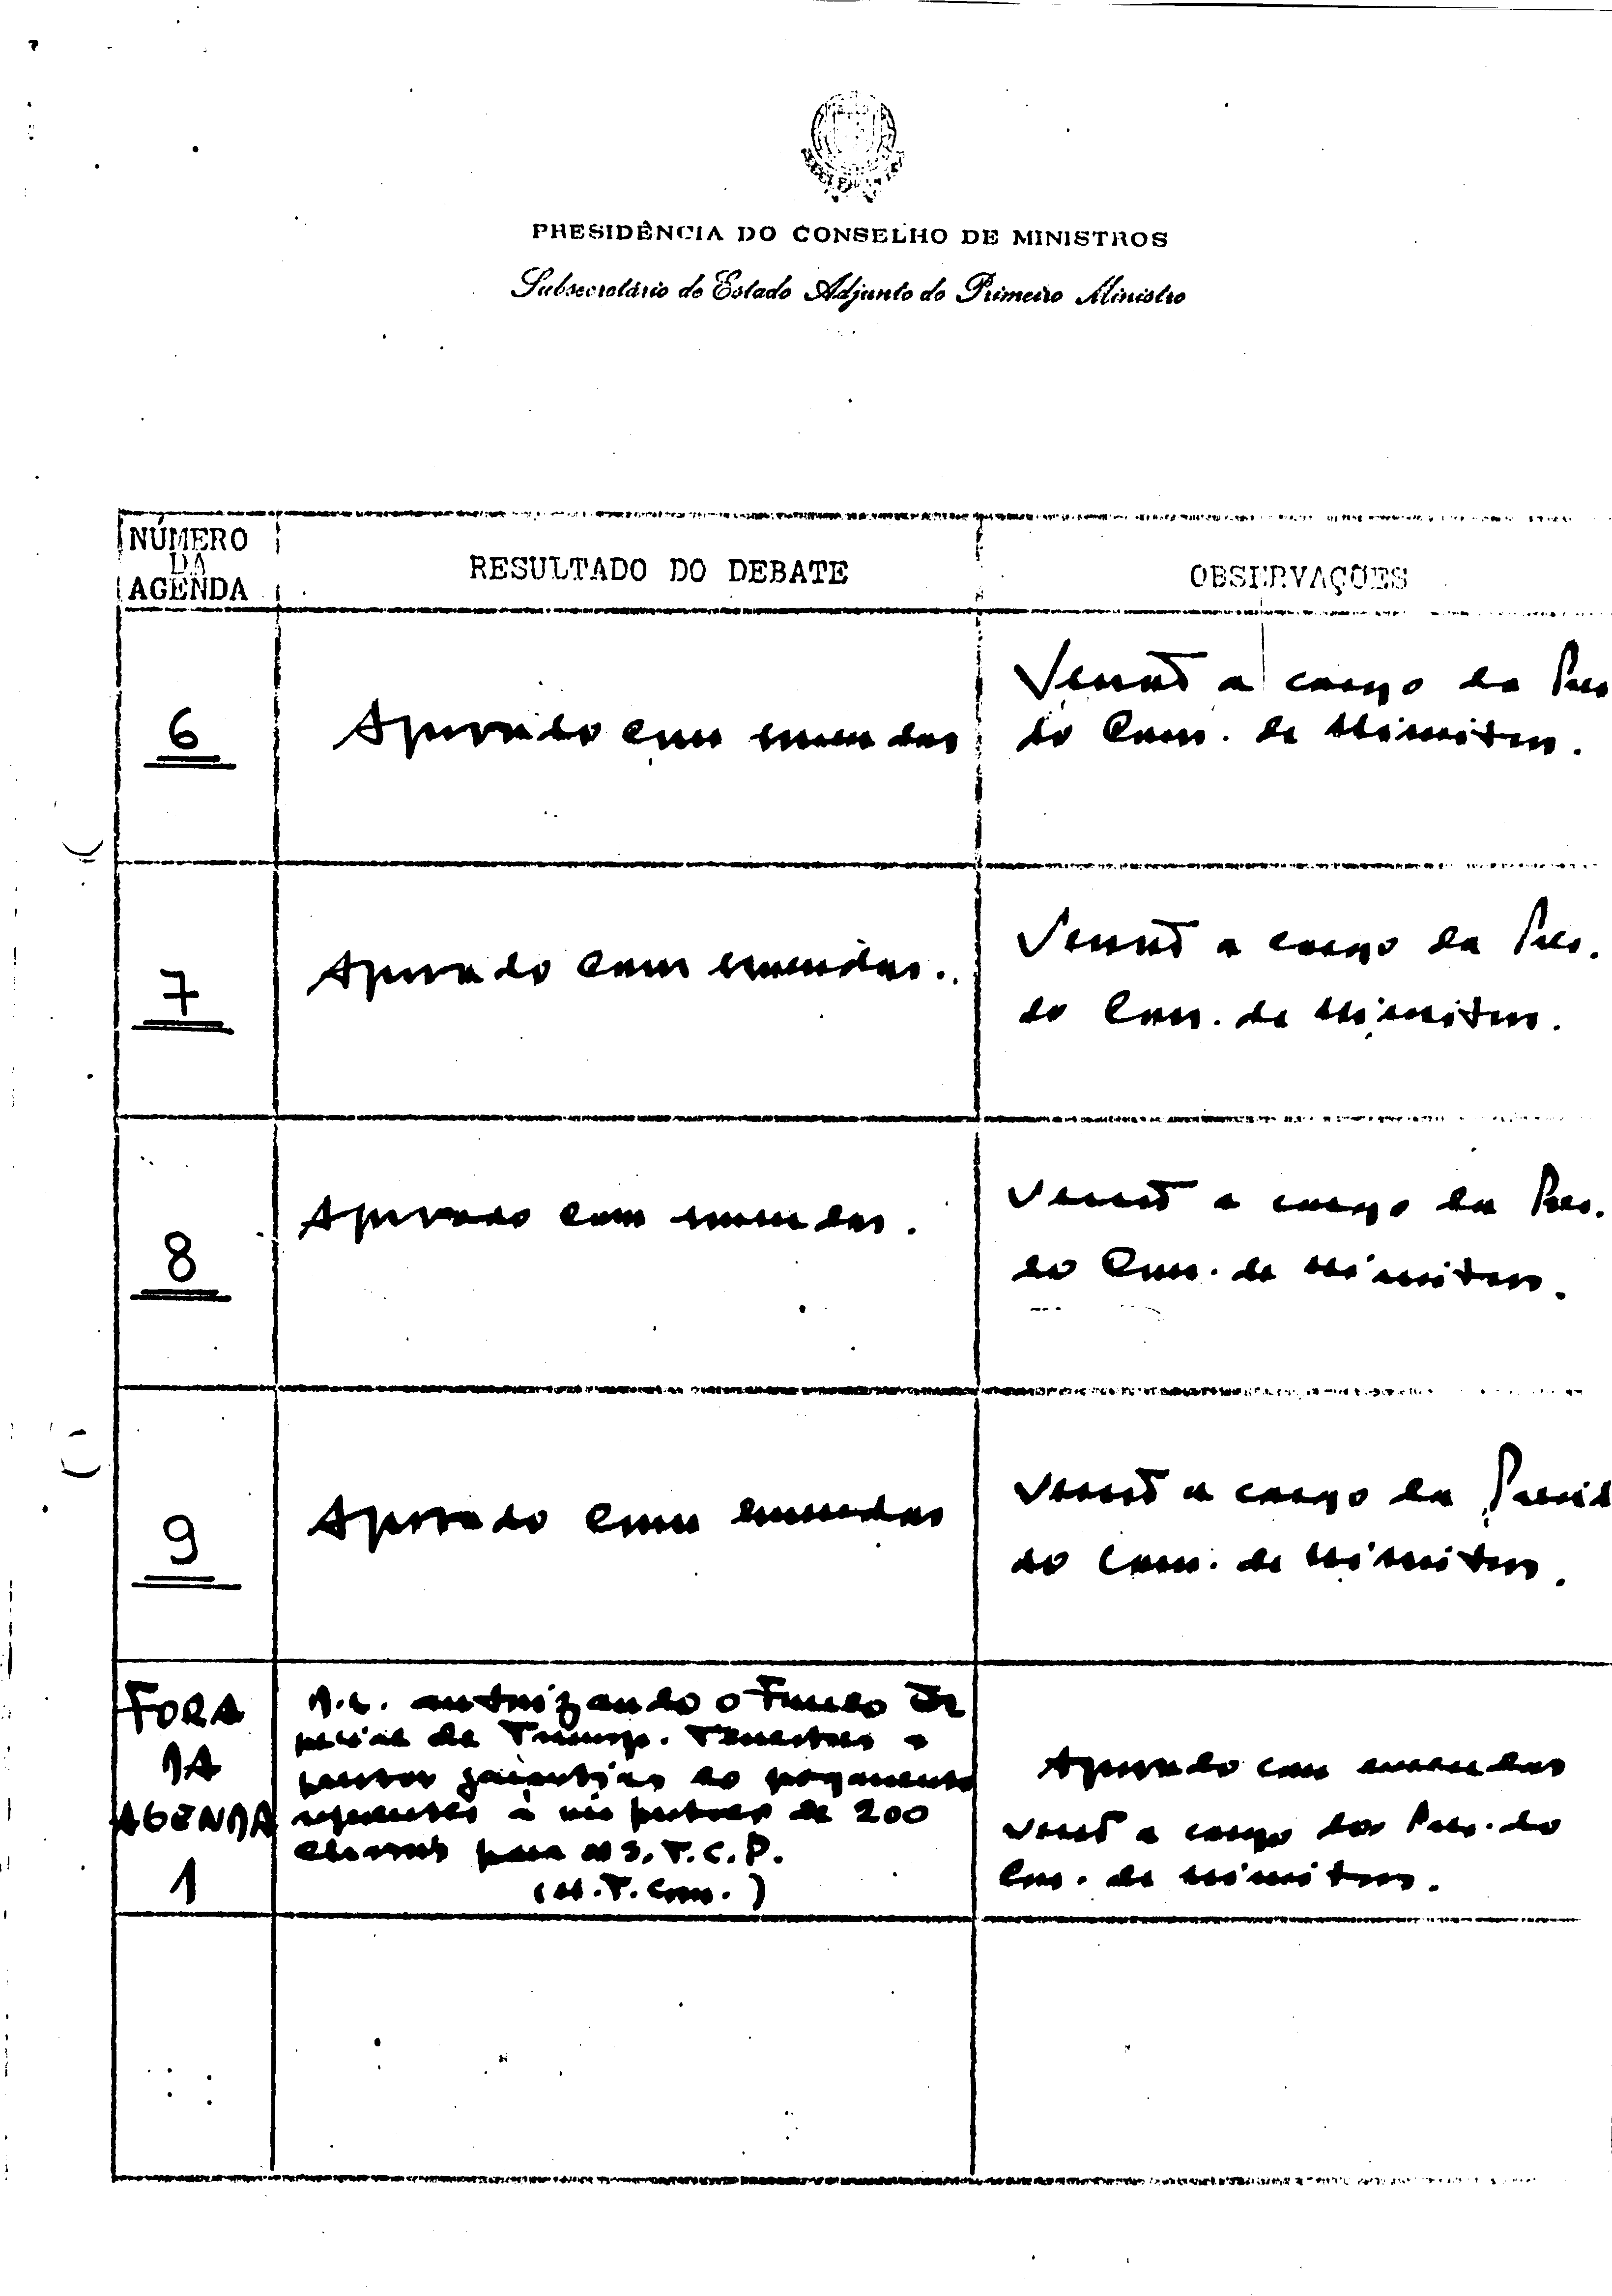 PRESIDÊNCIA DO CONSELHO DE MINISTROS
Subsecretário de Estado Adjunto do Primeiro Ministro
NÚMERO
DA
AGENDA
RESULTADO DO DEBATE
OBSERVAÇÕES
6
Aprovado com emendas
Versão a cargo da Pres
do Cons. de Ministros.
7
Aprovado com emendas.
Versão a cargo da Pres.
do Cons. de Ministros.
8
Aprovado com emendas.
Versão a cargo da Pres.
do Cons. de Ministros.
9
Aprovado com emendas
Versão a cargo da Presid
do Cons. de Ministros.
FORA
DA
AGENDA
1
D.L. autorizando o Fundo Es
pecial de Transp. Terrestres a
prestar garantias ao pagamento
à de 200
para S.T.C.P.
(M.T.Com.)
Aprovado com emendas
Versão a cargo da Pres. do
Cons. de Ministros.